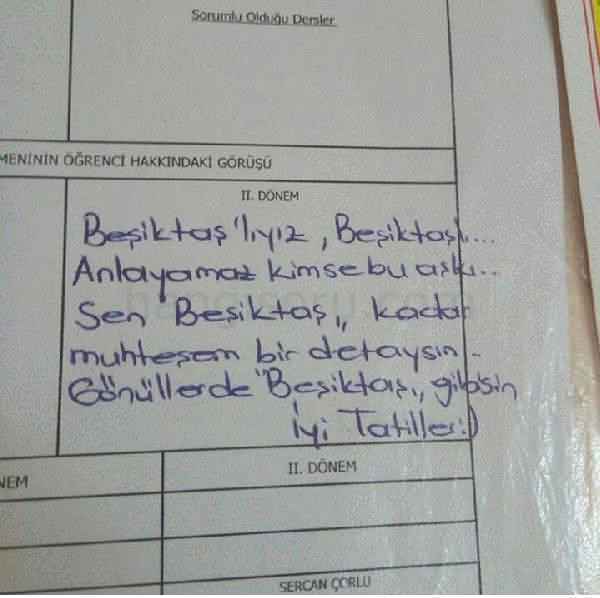 Sorumlu Olduğu Dersler
MENİNİN ÖĞRENCİ HAKKINDAKİ GÖRÜŞÜ
II. DÖNEM
Beşiktaş'lıyız, Beşiktaşlı...
Anlayamaz kimse bu aşkı...
Sen "Beşiktaş,, kadar
muhteşem bir detaysın.
Gönüllerde "Beşiktaş,, gibisin
İyi Tatiller:)
NEM
II. DÖNEM
SERCAN ÇORLU